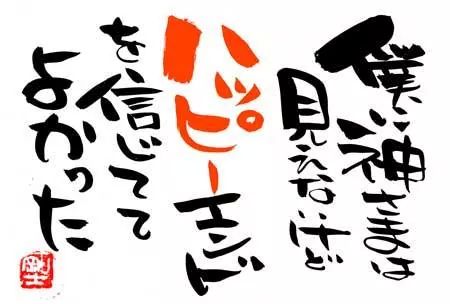 僕に神さまは
見えないけど
ハッピーエンド
を信じてて
よかった